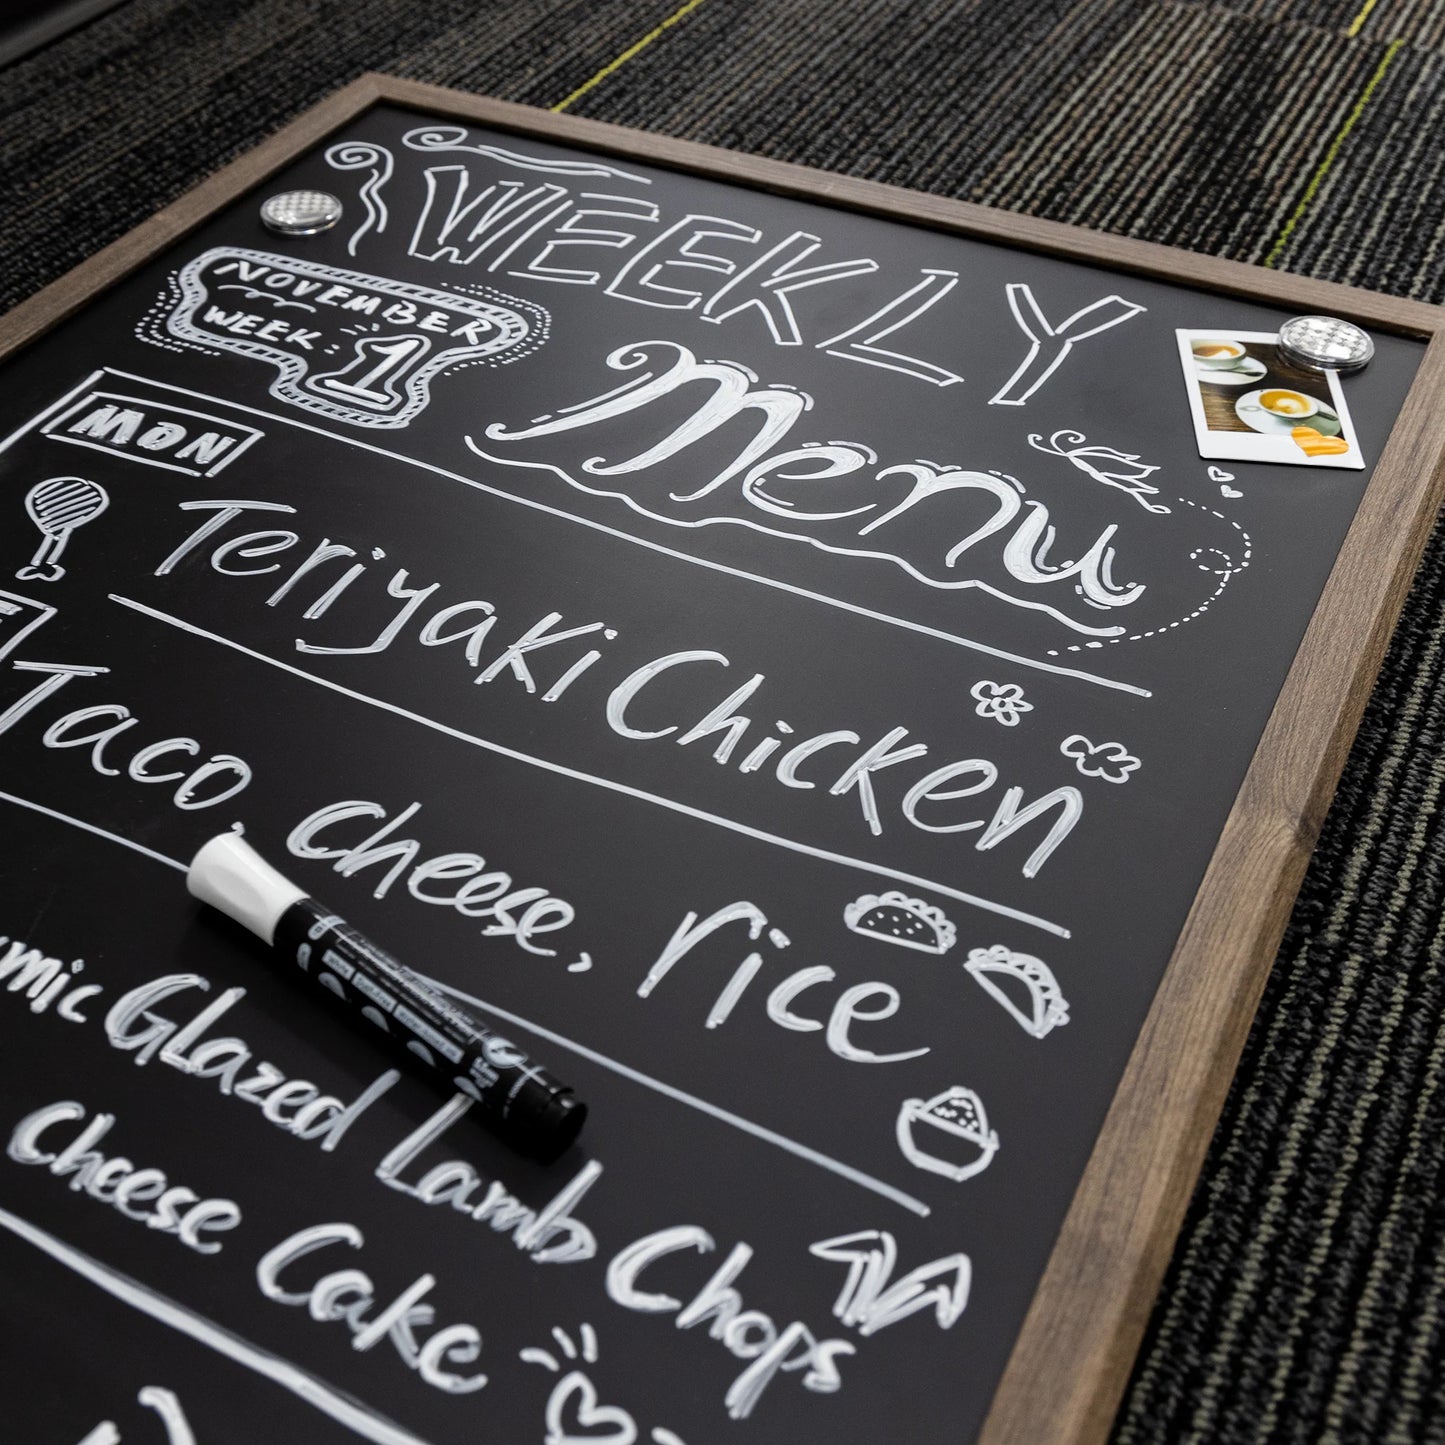 WEEKLY
Menu
NOVEMBER
WEEK: 1
MON
Teriyaki Chicken
Taco, cheese, rice
Glazed Lamb Chops
cheese Cake